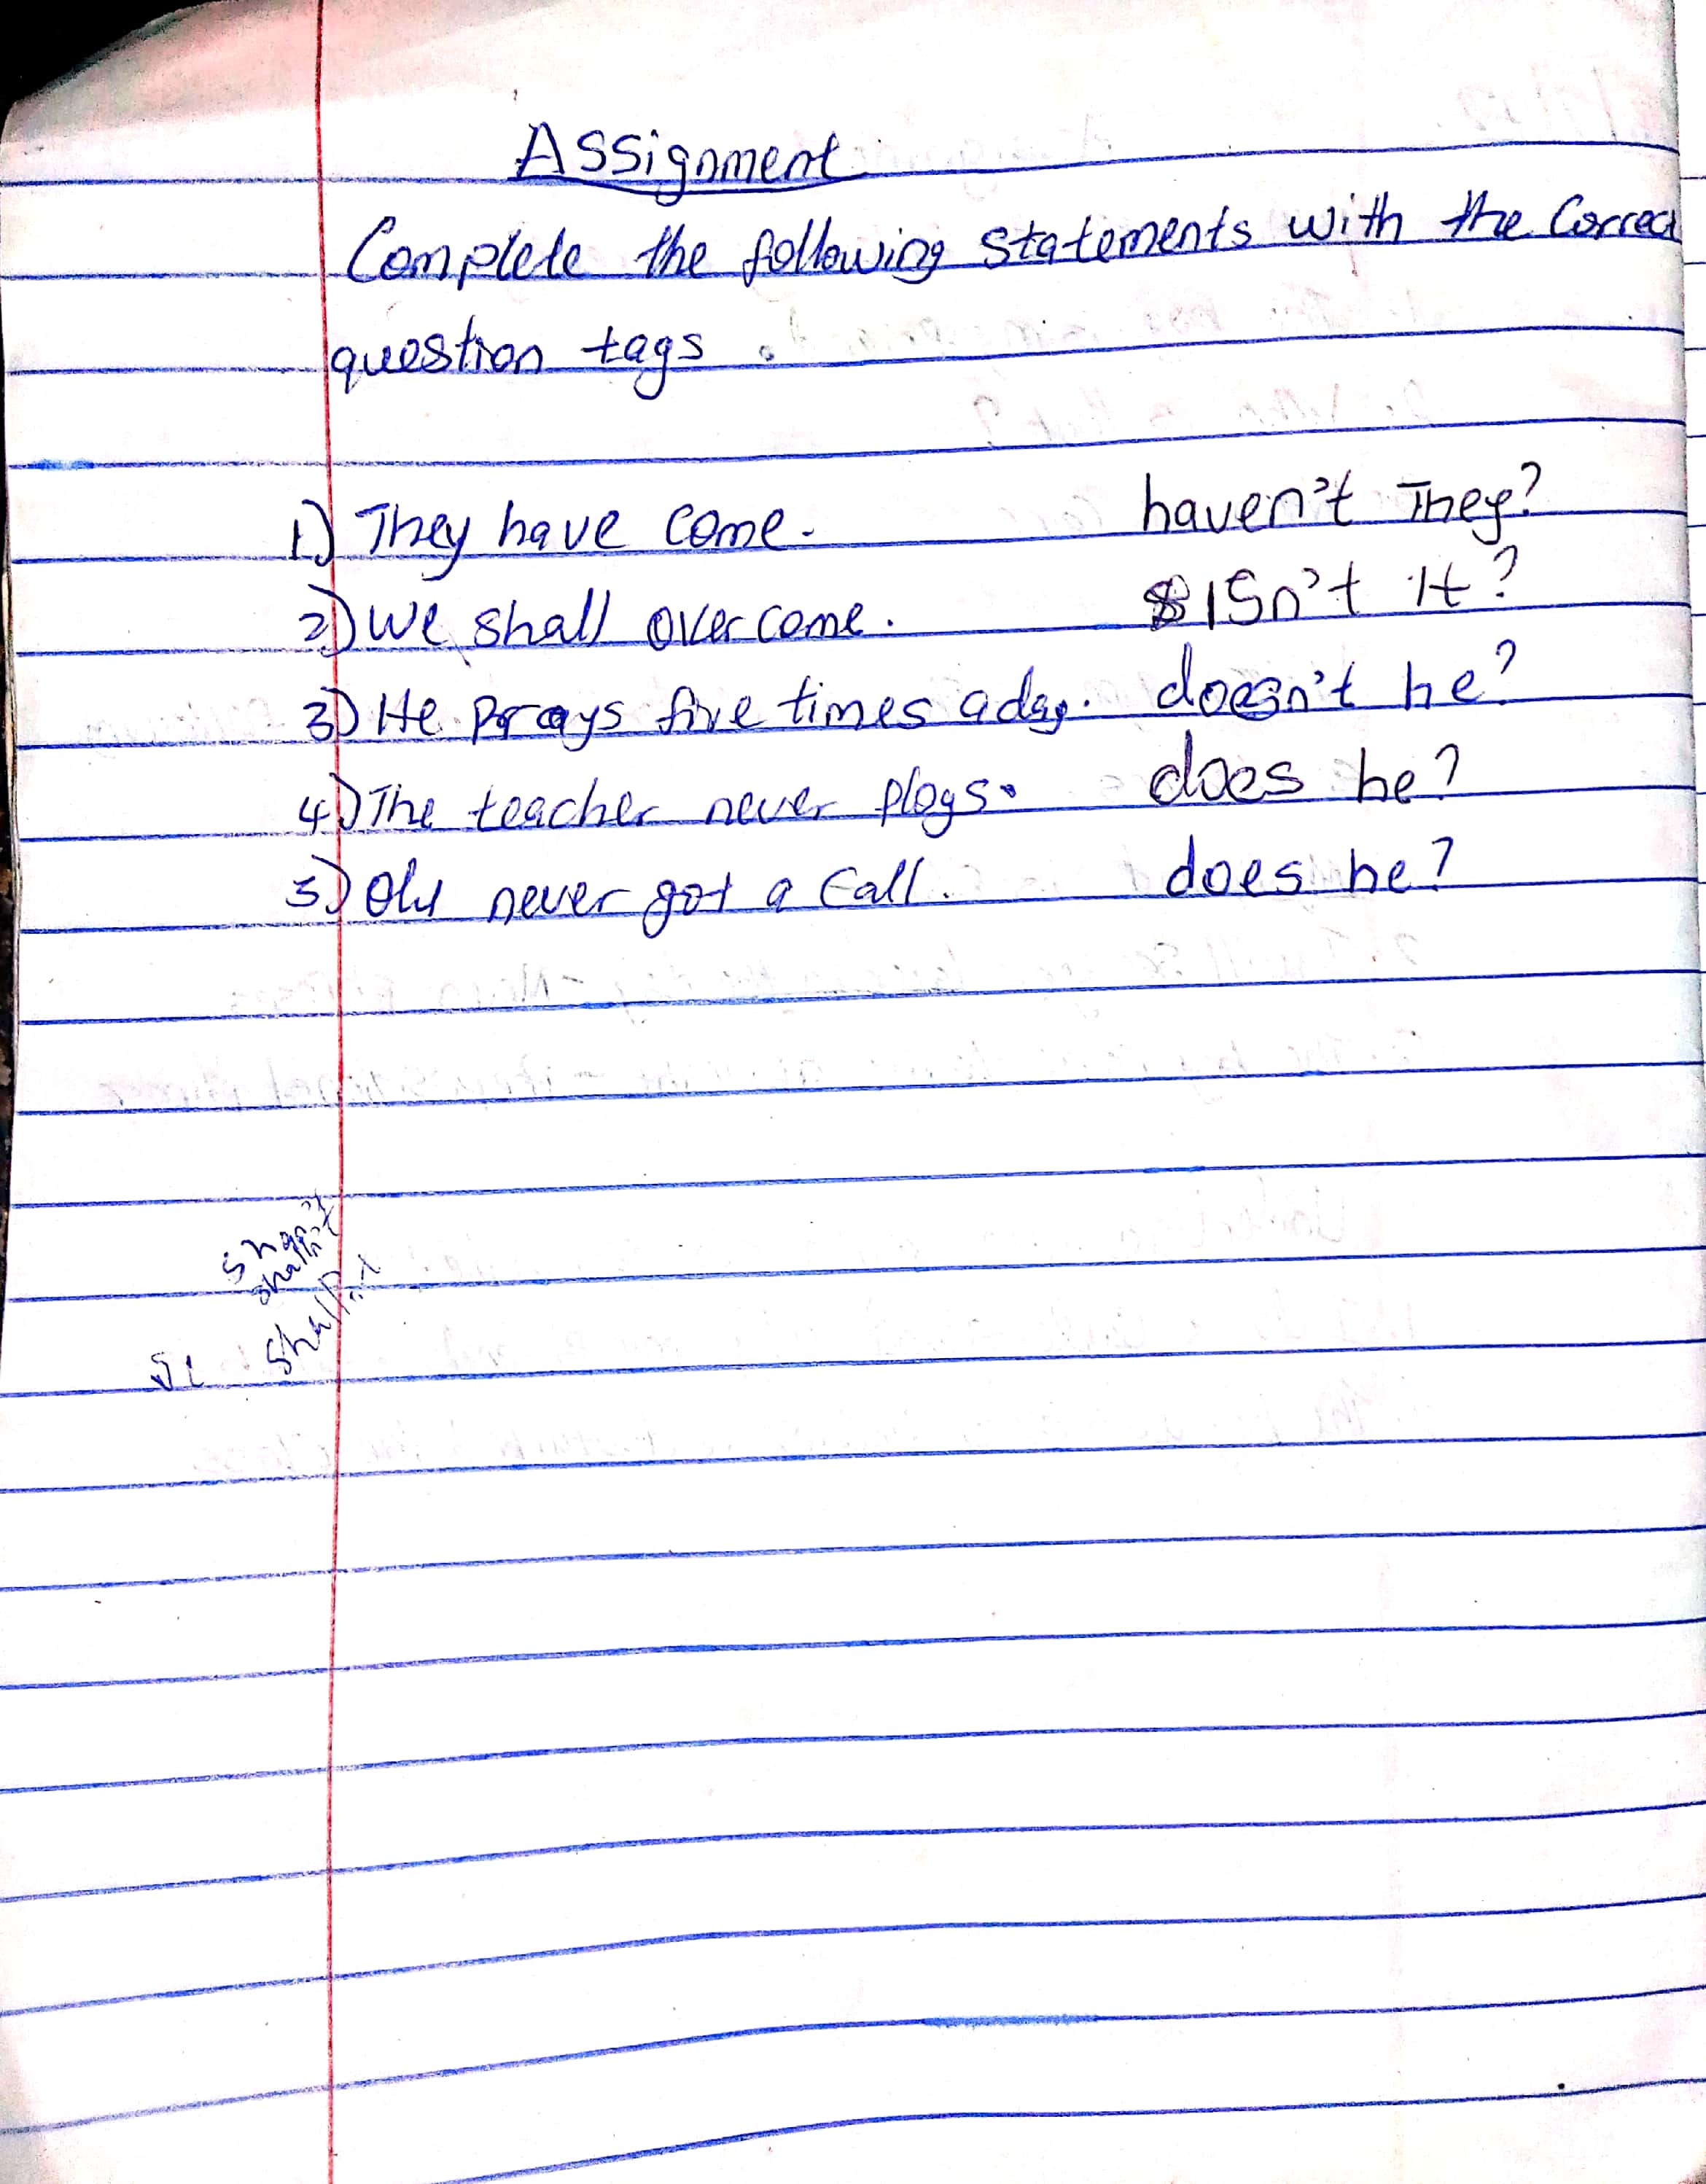 Assignment
Complete the following statements with the Correct
question tags.
1) They have come. haven't They?
2) We shall overcome. isn't it?
3) He prays five times a day. doesn't he?
4) The teacher never plays. does he?
5) never got a call. does he?
shan't